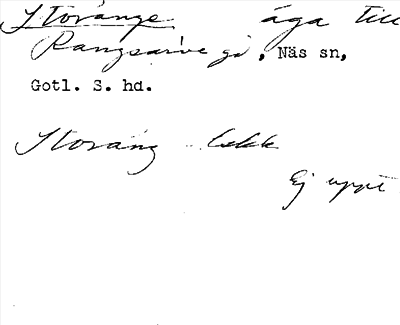 Storänge äga till
Rangsarve gd, Näs sn,
Gotl. S. hd.
Storäng bekk
Ej uppt